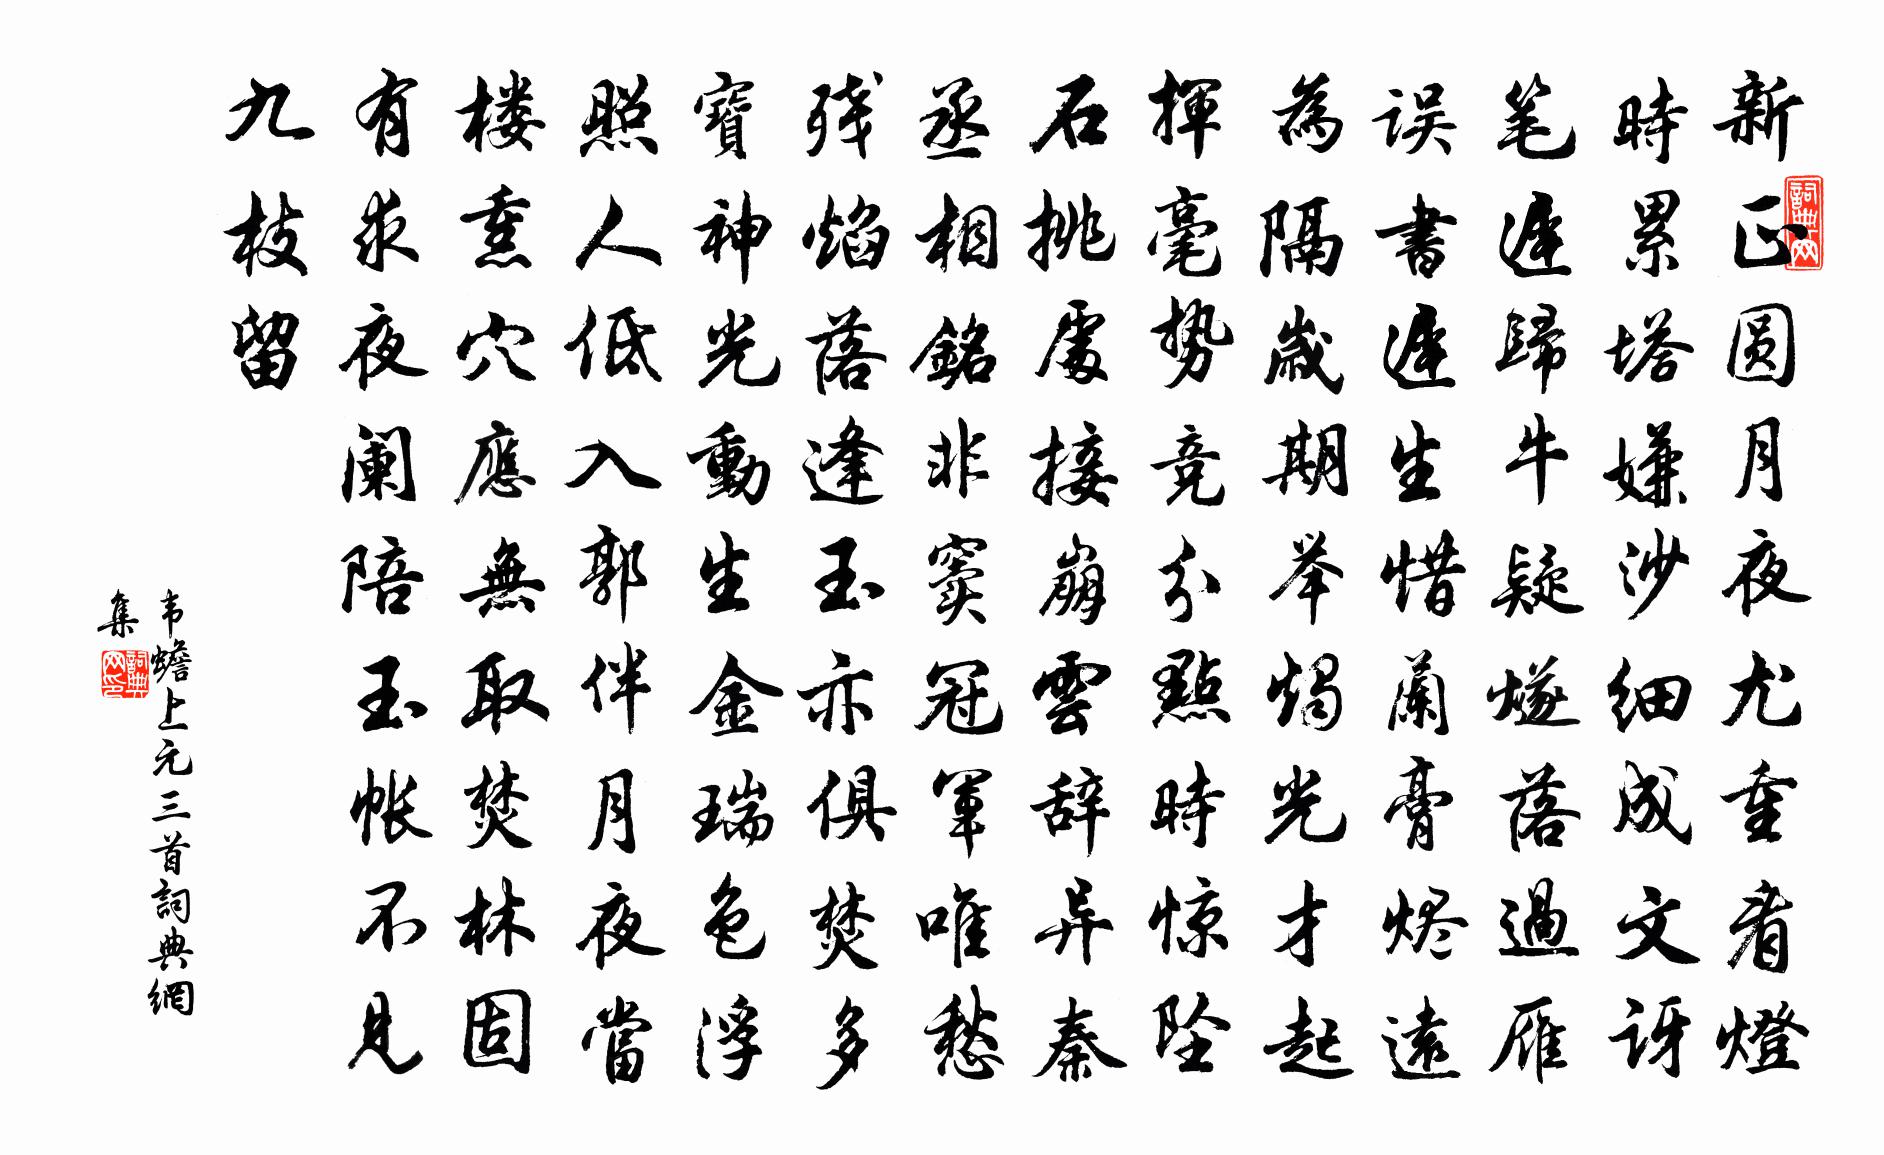 新正圆月夜尤重看燈
時累塔嫌沙细成文讶
笔遲歸牛疑燧落過雁
误書遲生惜蘭膏烬遠
為隔歲期举燭光才起
揮毫势竞分點時惊坠
石挑處接崩雲辞异秦
丞相銘非窦冠軍唯愁
残焰落逢玉亦俱焚多
寶神光動生金瑞色浮
照人低入郭伴月夜當
楼熏穴應無取焚林固
有求夜阑陪玉帐不見
九枝留
韦蟾上元三首詞典網
集
詞典网
詞典网印